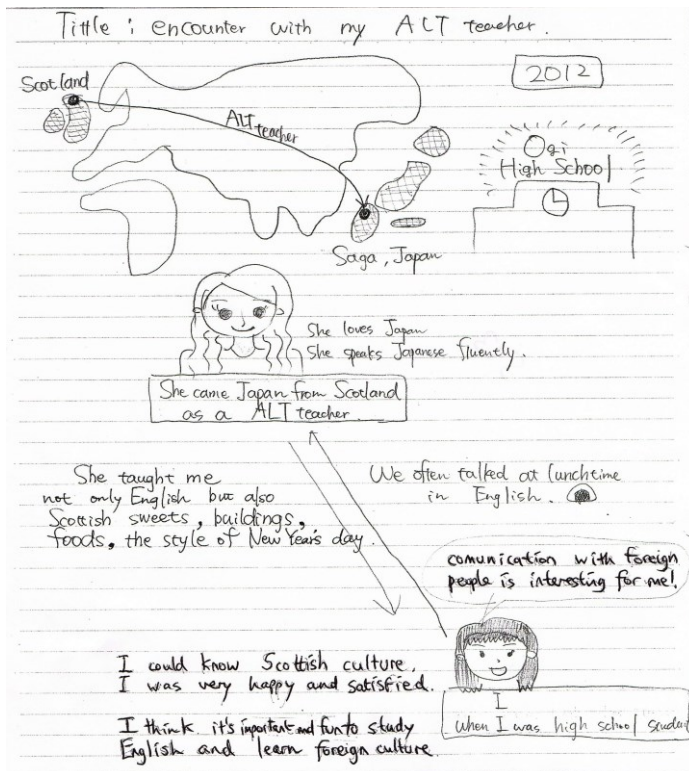 Tittle : encounter with my ALT teacher.
Scotland
2012
ALT teacher
Ogi
High School
Saga, Japan
She loves Japan
She speaks Japanese fluently.
She came Japan from Scotland
as a ALT teacher.
She taught me
not only English but also
Scottish sweets, buildings,
foods, the style of New Year's day.
We often talked at lunchtime
in English.
comunication with foreign
people is interesting for me!
I could know Scottish culture.
I was very happy and satisfied.
I think it's important and fun to study
English and learn foreign culture.
I
when I was high school student